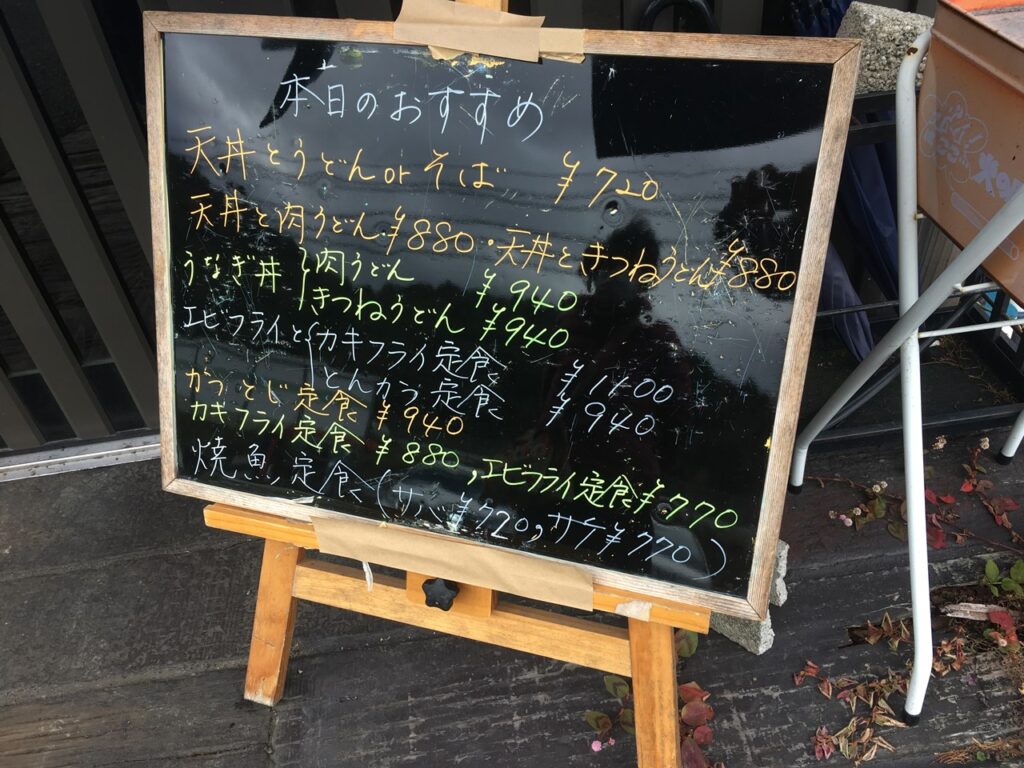 本日のおすすめ
天丼とうどんorそば ¥720
天丼と肉うどん¥880・天丼ときつねうどん¥880
うなぎ丼{肉うどん ¥940
きつねうどん ¥940
エビフライと{カキフライ定食 ¥1400
とんかつ定食 ¥940
かつとじ定食 ¥940
カキフライ定食 ¥880, エビフライ定食¥770
焼魚定食(サバ¥720, サケ¥770)